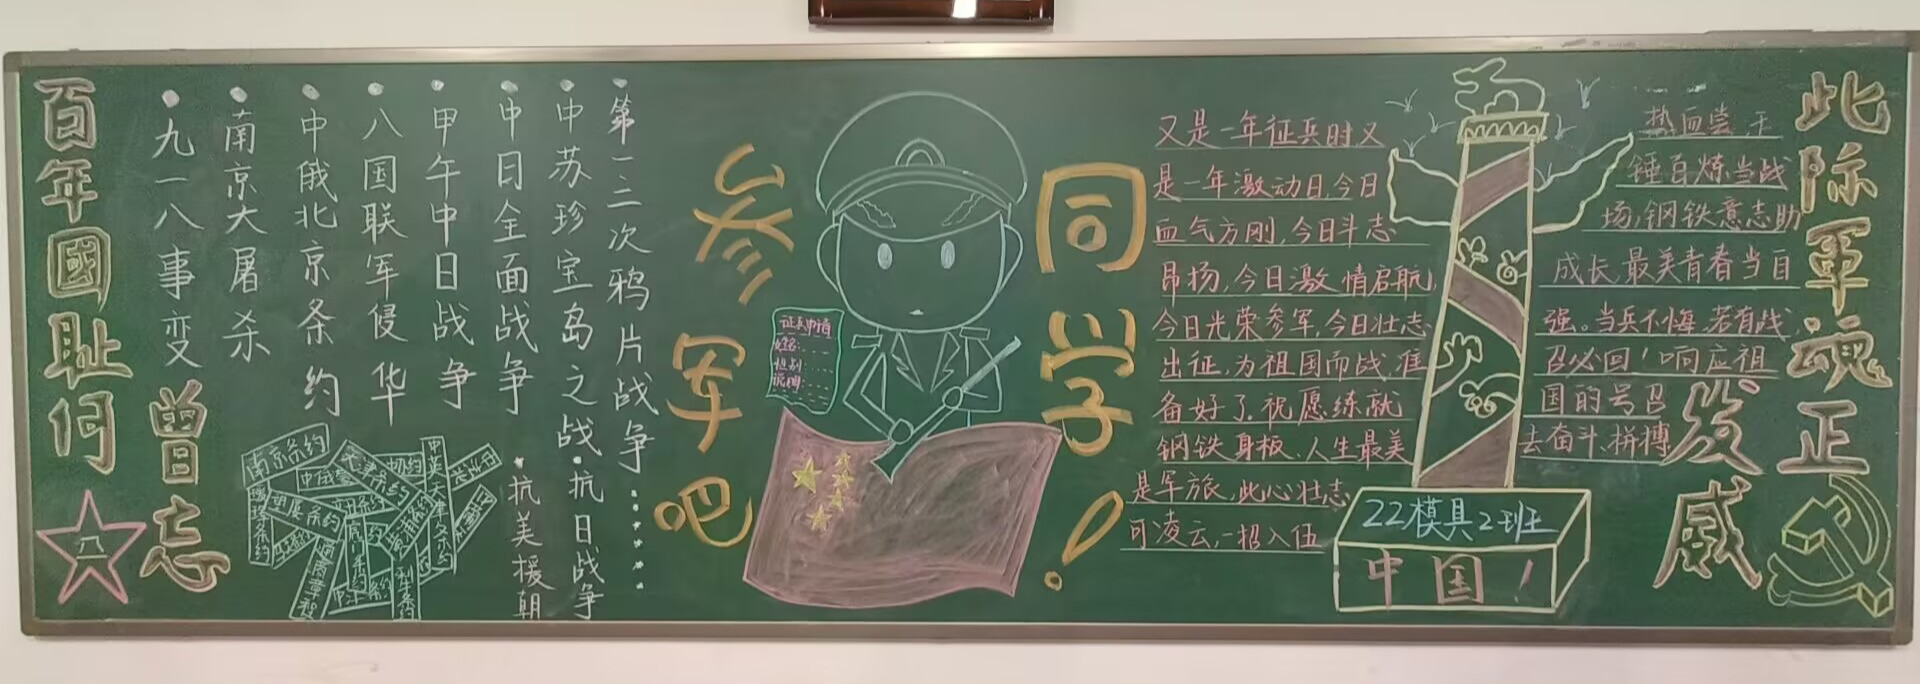 百年國耻何
曾忘
九一八事变
南京大屠杀
中俄北京条约
八国联军侵华
甲午中日战争
中日全面战争
中苏珍宝岛之战
第一二次鸦片战争
抗美援朝
抗日战争
南京条约
天津条约
瑷珲条约
望厦条约
同学!
参军吧
又是一年征兵时又
是一年激动日,今日
血气方刚,今日斗志
昂扬,今日激情启航,
今日光荣参军,今日壮志
出征,为祖国而战,准
备好了.祝愿练就
钢铁身板、人生最美
是军旅,此心壮志
可凌云,一招入伍
热血尝千
锤百炼当战
场,钢铁意志助
成长.最美青春当自
强。当兵不悔,若有战,
召必回!响应祖
国的号召
去奋斗、拼搏
22模具2班
中国!
此际軍魂正
发威